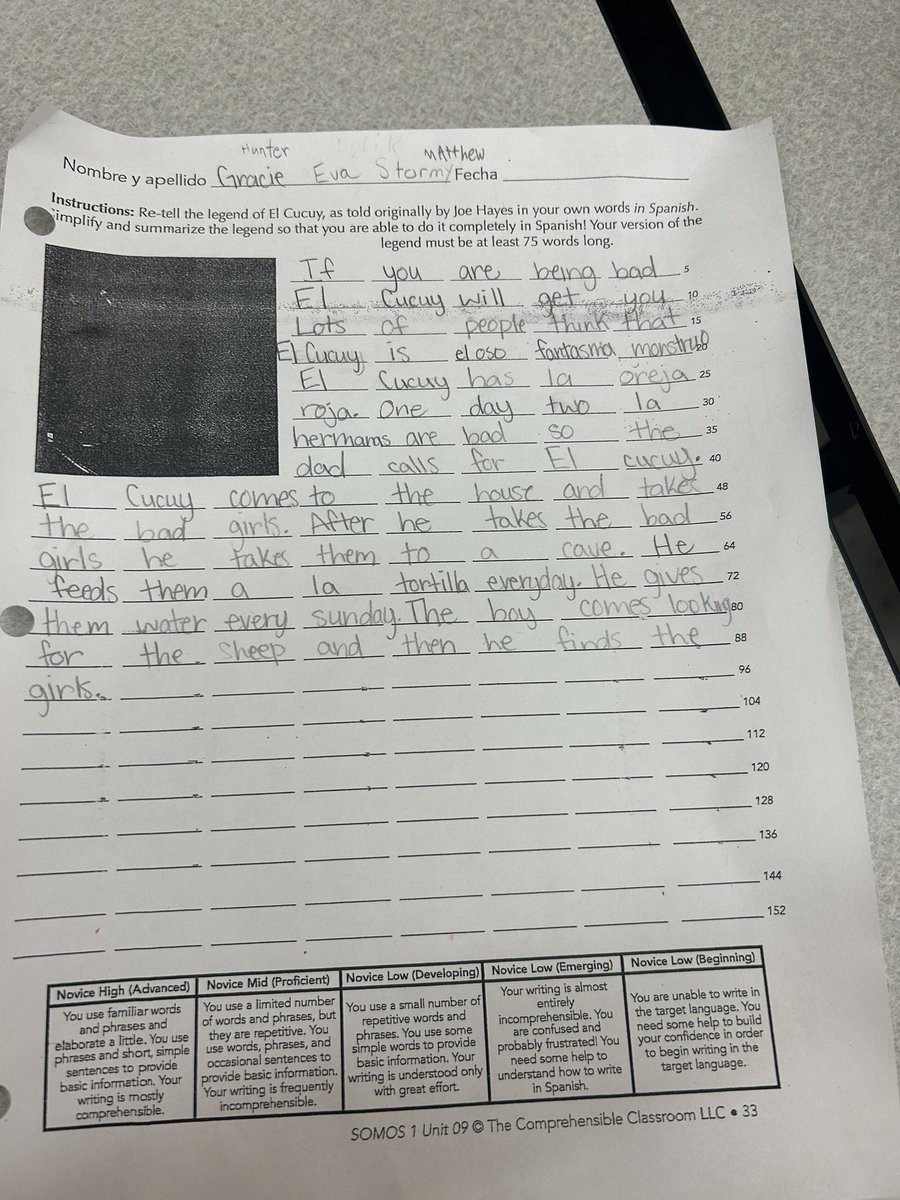 Hunter Matthew
Nombre y apellido Gracie Eva Stormy Fecha
Instructions: Re-tell the legend of El Cucuy, as told originally by Joe Hayes in your own words in Spanish.
implify and summarize the legend so that you are able to do it completely in Spanish! Your version of the
legend must be at least 75 words long.
If you are being bad 5
El Cucuy will get you 10
Lots of people think that 15
El Cucuy is el oso fantasma monstruo 20
El Cucuy has la oreja 25
roja. One day two la 30
hermanas are bad so the 35
dad calls for El cucuy. 40
El Cucuy comes to the house and takes 48
the bad girls. After he takes the bad 56
girls he takes them to a cave. He 64
feeds them a la tortilla everyday. He gives 72
them water every sunday. The boy comes looking 80
for the sheep and then he finds the 88
girls. 96
104
112
120
128
136
144
152
Novice High (Advanced) Novice Mid (Proficient) Novice Low (Developing) Novice Low (Emerging) Novice Low (Beginning)
You use familiar words
and phrases and
elaborate a little. You use
phrases and short, simple
sentences to provide
basic information. Your
writing is mostly
comprehensible.
You use a limited number
of words and phrases, but
they are repetitive. You
use words, phrases, and
occasional sentences to
provide basic information.
Your writing is frequently
incomprehensible.
You use a small number of
repetitive words and
phrases. You use some
simple words to provide
basic information. Your
writing is understood only
with great effort.
Your writing is almost
entirely
incomprehensible. You
are confused and
probably frustrated! You
need some help to
understand how to write
in Spanish.
You are unable to write in
the target language. You
need some help to build
your confidence in order
to begin writing in the
target language.
SOMOS 1 Unit 09 © The Comprehensible Classroom LLC • 33